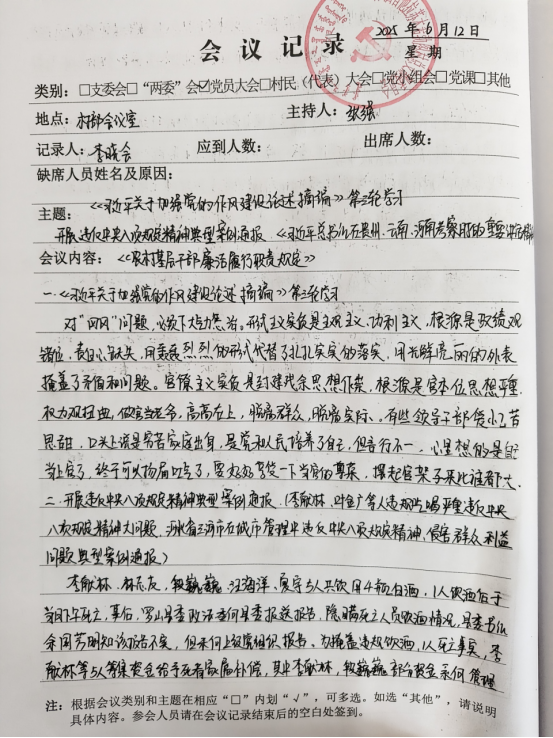 会议记录
2025年6月12日
星期
类别：□支委会□“两委”会☑党员大会□村民（代表）大会□党小组会□党课□其他
地点：村部会议室 主持人：张强
记录人：李晓会 应到人数： 出席人数：
缺席人员姓名及原因：
主题：《习近平关于加强党的作风建设论述摘编》第三轮学习
开展违反中央八项规定精神典型案例通报 《习近平总书记在贵州、云南、河南考察时的重要讲话精神
会议内容：《农村基层干部廉洁履行职责规定》
一.《习近平关于加强党的作风建设论述摘编》第三轮学习
对“四风”问题，必须下大力惩治。形式主义实质是主观主义、功利主义，根源是政绩观
错位、责任心缺失，用轰轰烈烈的形式代替了扎扎实实的落实，用光鲜亮丽的外表
掩盖了矛盾和问题。官僚主义实质是封建残余思想作祟，根源是官本位思想严重，
权力观扭曲，做官当老爷，高高在上，脱离群众，脱离实际、有些领导干部贪小了苦
思甜，口头上说是穷苦家庭出身，是党和人民培养了自己，但言行不一，心里想的是自己
当上官了，终于可以扬眉吐气了，要好好享受一下当官的尊荣，摆起官架子来比谁都大
二.开展违反中央八项规定精神典型案例通报.（李献林、叶金广等人违规吃喝严重违反中央
八项规定精神大问题，河北省三河市在城市管理中违反中央八项规定精神、侵害群众利益
问题典型案例通报）
李献林、 、 巍巍、汪海洋、夏宇5人共饮用4瓶白酒，1人饮酒后于
当日下午死亡，事后，罗山县委政法委向县委报送报告，隐瞒死亡人员饮酒情况，县委书记
余国芳明知该报告不实，但未向上级党组织报告。为掩盖违规饮酒、1人死亡事实，李
献林等5人筹集资金给予死者家属补偿，其中李献林、 巍巍部分资金系向管理
注：根据会议类别和主题在相应“□”内划“√”，可多选。如选“其他”，请说明
具体内容。参会人员请在会议记录结束后的空白处签到。